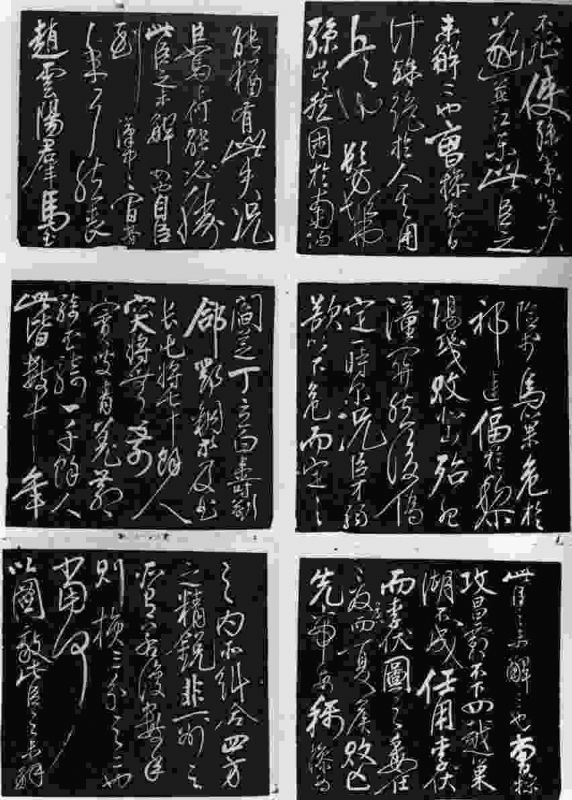 不征使孫策坐大
遂並江東此臣之
未解二也曹操智
計殊絕於人其用
兵也髣髴
孫吳然困於南陽
險於烏巢危於
祁連偪於黎
陽幾敗北山殆死
潼關然後偽
定一時爾況臣才弱
欲以不危而定之
此臣之未解三也曹操五
攻昌霸不下四越巢
湖不成任用李伏
而李伏圖之委任
夏侯而夏侯敗亡
先帝每稱操為
能猶有此失況
臣駑下何能必勝
此臣之未解四也自臣
到漢中中間朞
年耳然喪
趙雲陽羣馬玉
閻芝丁立白壽劉
郃鄧銅等及曲
長屯將七十餘人
突將無前
賨叟青羌散
騎武騎一千餘人
此皆數十年
之內所糾合四方
之精銳非一州之
所有若復數年
則損三分之二也
當何
以圖敵此臣之未解